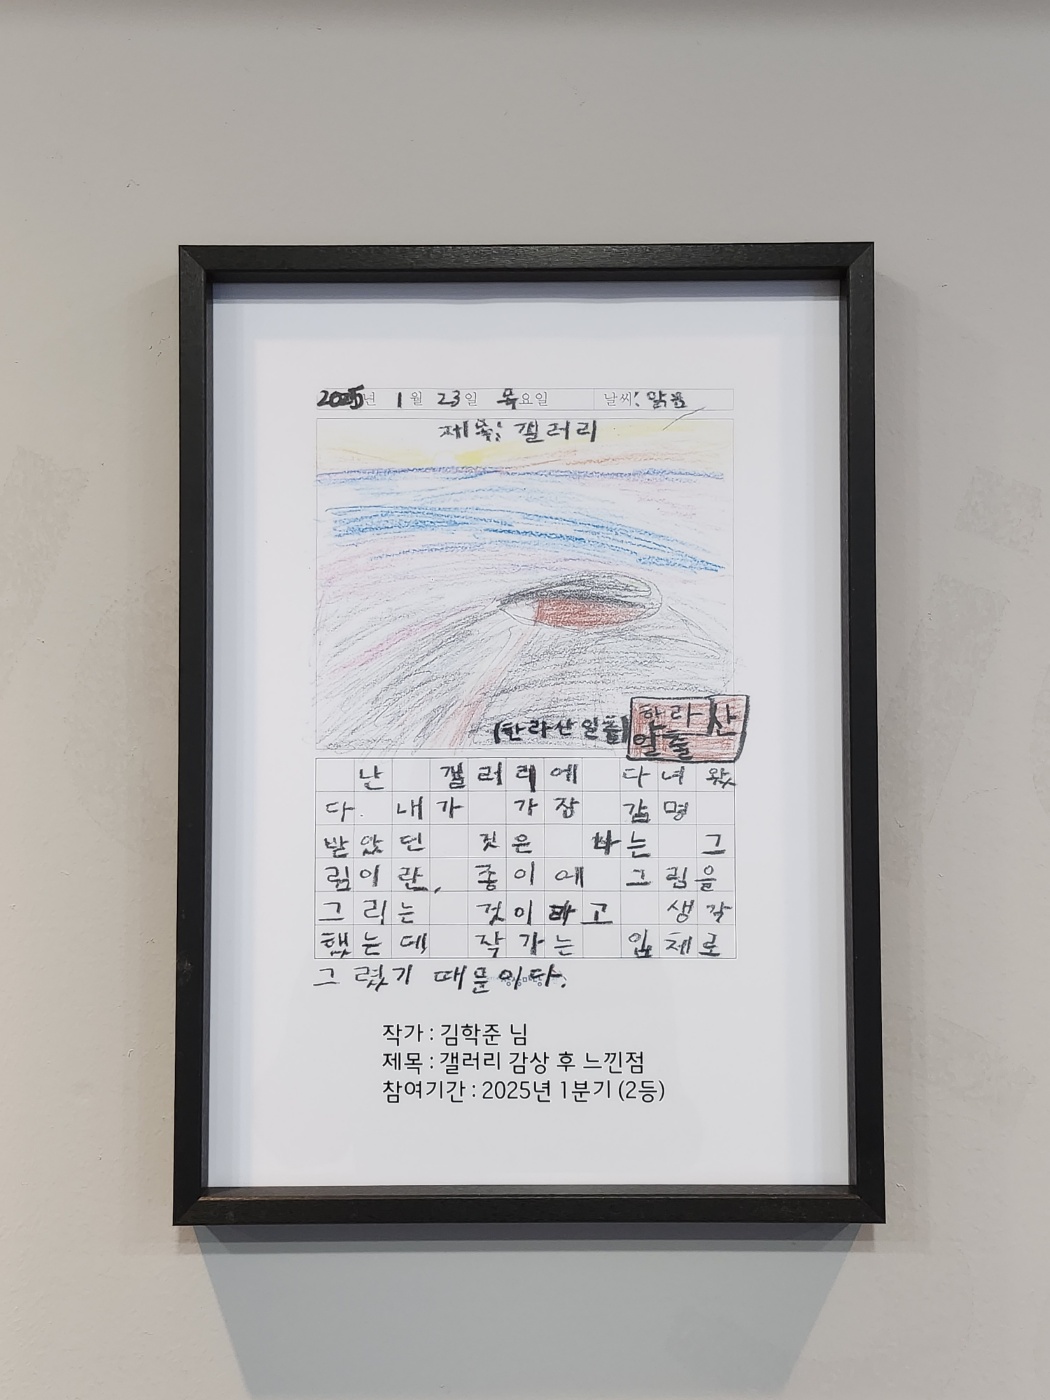 2025년 1월 23일 목요일 날씨: 맑음
제목: 갤러리
(한라산 일출)
한라산
일출
난 갤러리에 다녀왔
다. 내가 가장 감명
받았던 것은 나는 그
림이란, 종이에 그림을
그리는 것이라고 생각
했는데 작가는 입체로
그렸기 때문이다.
작가 : 김학준 님
제목 : 갤러리 감상 후 느낀점
참여기간 : 2025년 1분기 (2등)